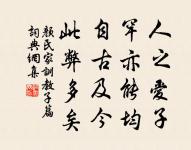 人之愛子
罕亦能均
自古及今
此弊多矣
顏氏家訓教子篇
詞典網集